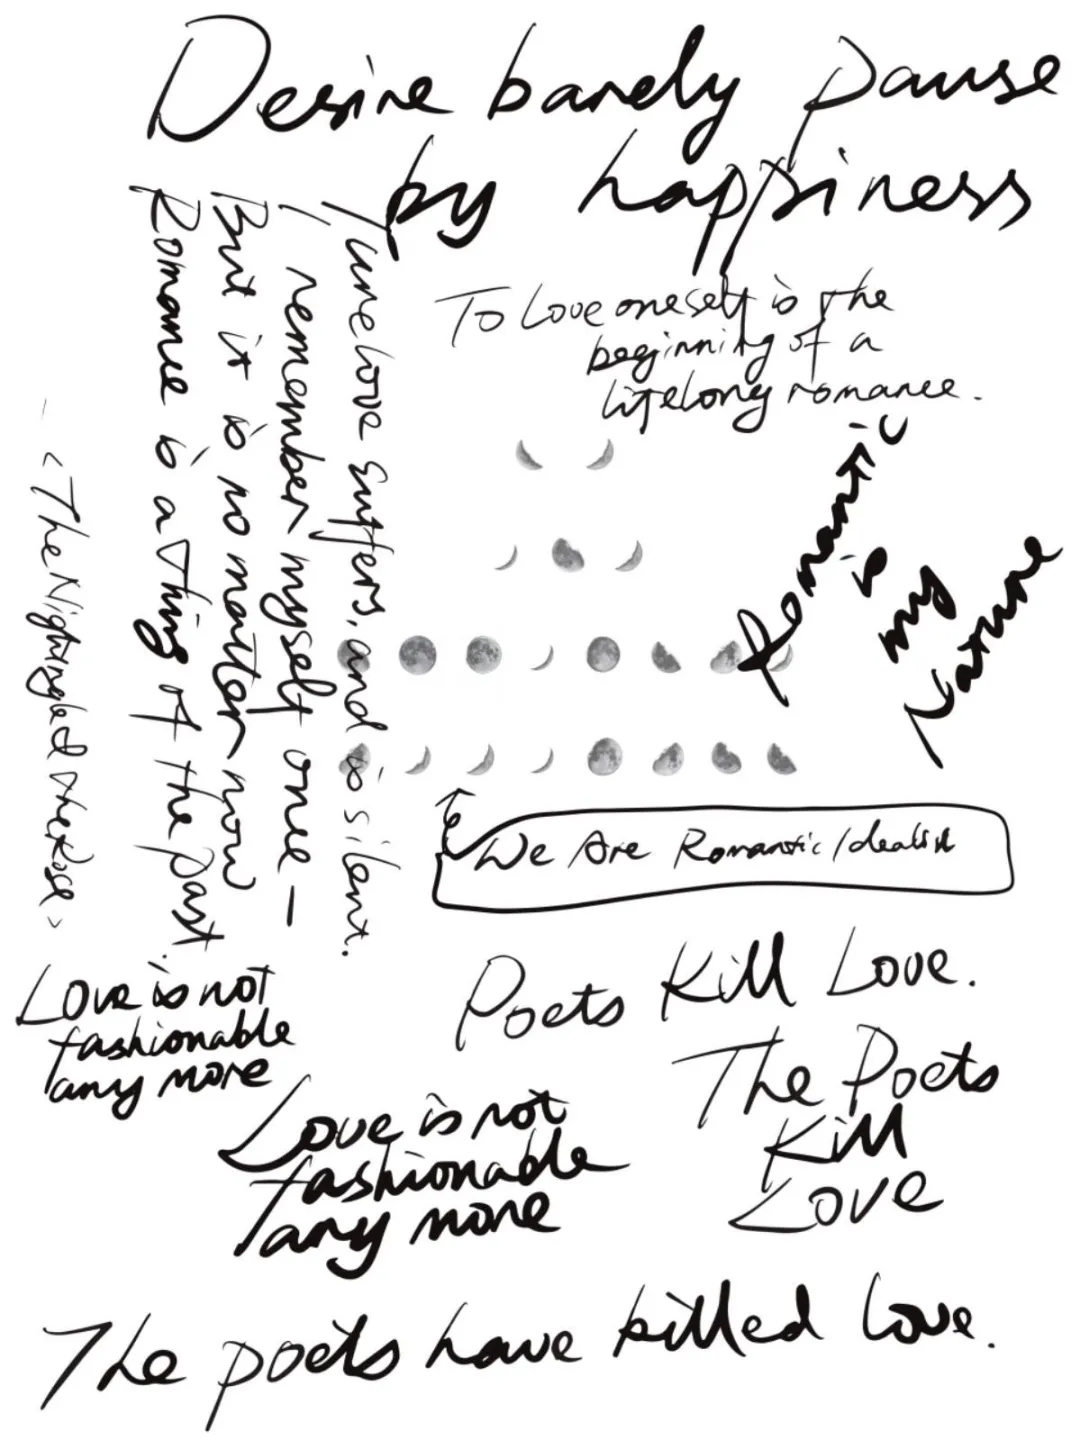 Desire barely pause
by happiness
To Love oneself is the
beginning of a
lifelong romance.
True love suffers, and is silent.
I remember myself one —
But it is no matter now
Romance is a thing of the past.
<The Nightingale & the Rose>
Romantic
is
my
Nature
We Are Romantic Idealist
Poets Kill Love.
The Poets
Kill
Love
Love is not
fashionable
any more
Love is not
fashionable
any more
The poets have killed love.